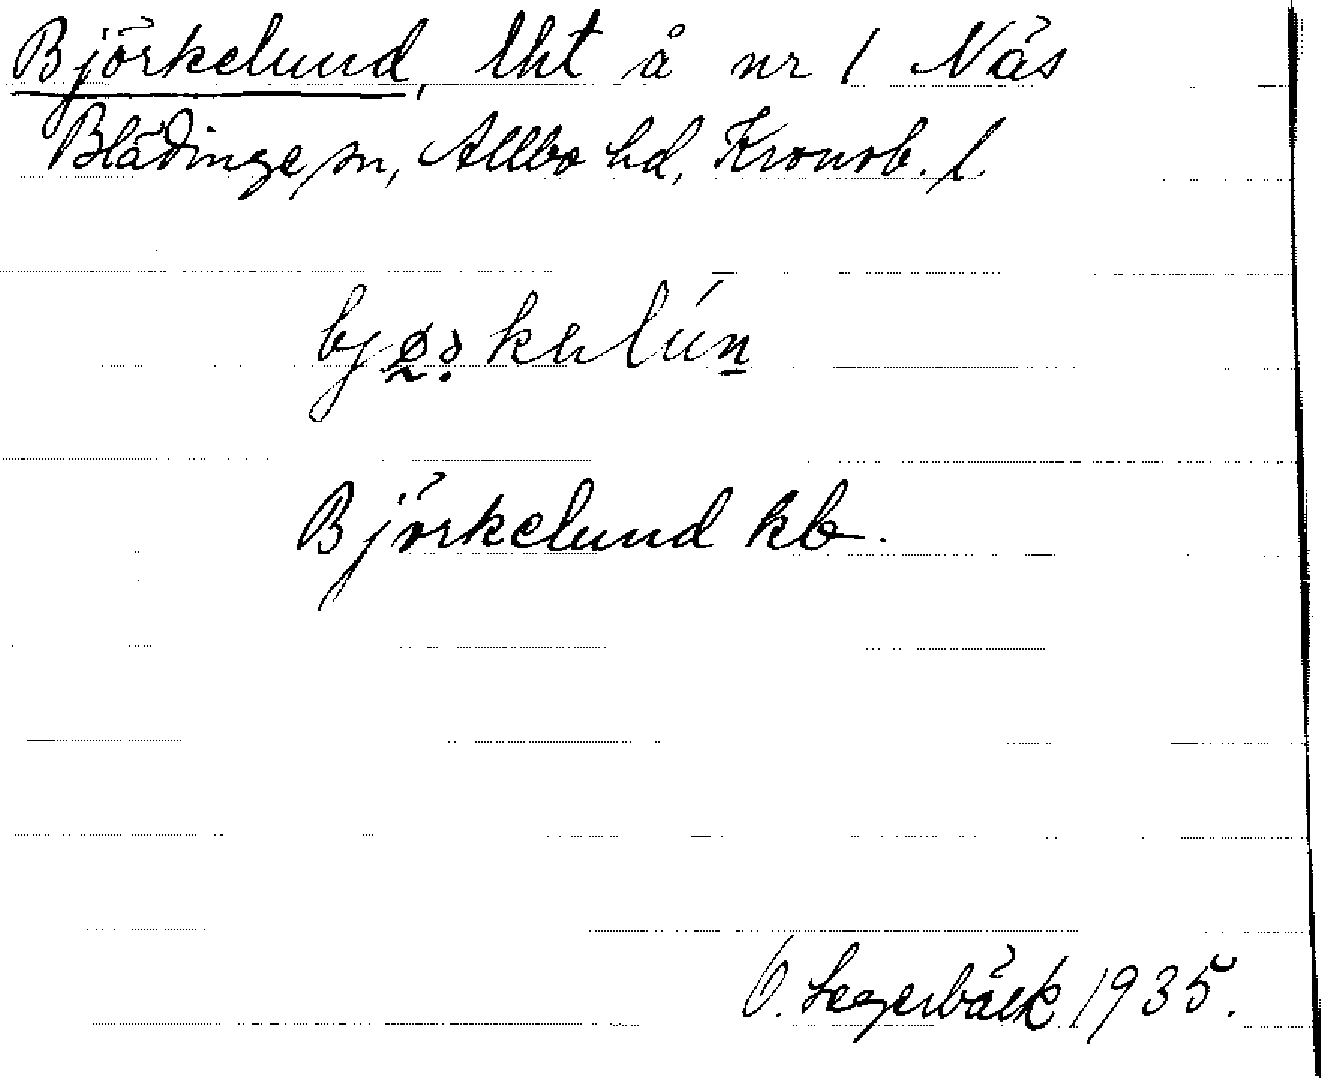 Björkelund, lht å nr 1 Näs
Blädinge sn, Allbo hd, Kronob. l.
Björkelund kb.
O. Segerbäck 1935.